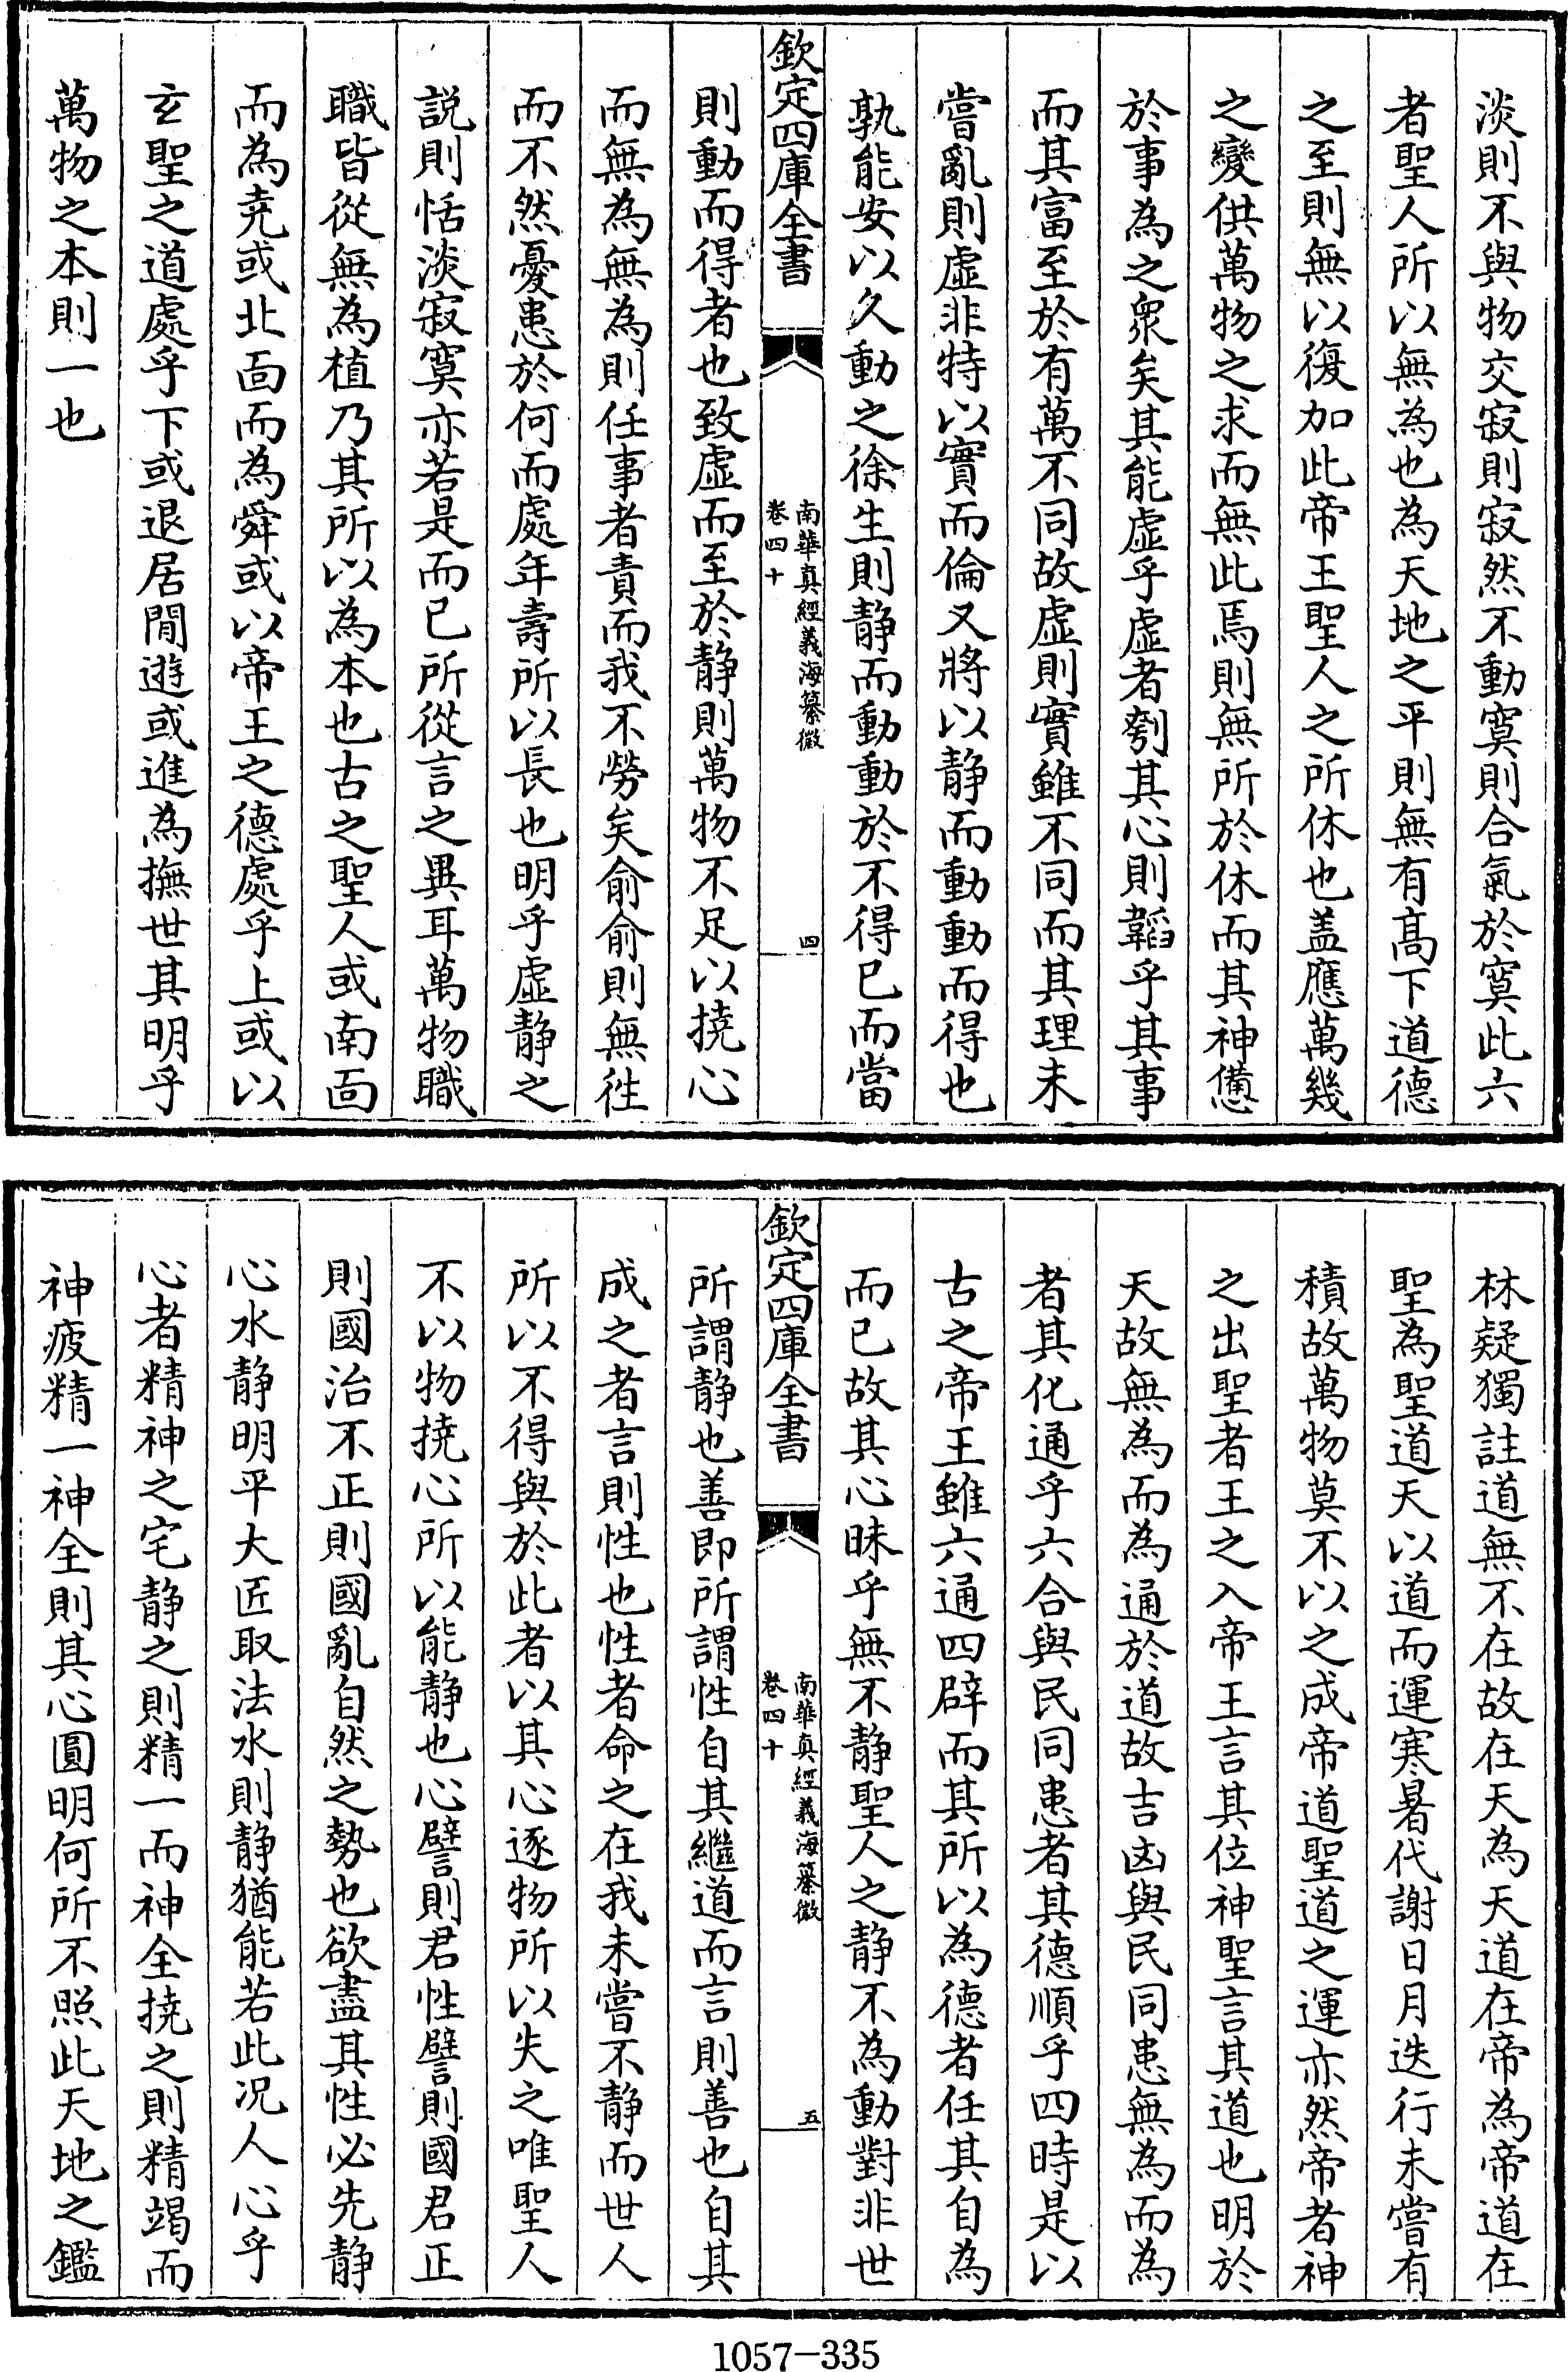 淡則不與物交寂則寂然不動寞則合氣於寞此六
者聖人所以無為也為天地之平則無有髙下道德
之至則無以復加此帝王聖人之所休也盖應萬幾
之變供萬物之求而無此焉則無所於休而其神憊
於事為之衆矣其能虚乎虚者刳其心則韜乎其事
而其富至於有萬不同故虚則實雖不同而其理未
嘗亂則虚非特以實而倫又將以静而動動而得也
孰能安以久動之徐生則静而動動於不得已而當
欽定四庫全書
南華真經義海纂微
卷四十
四
則動而得者也致虚而至於静則萬物不足以撓心
而無為無為則任事者責而我不勞矣俞俞則無往
而不然憂患於何而處年壽所以長也明乎虚静之
説則恬淡寂寞亦若是而已所從言之異耳萬物職
職皆從無為植乃其所以為本也古之聖人或南面
而為堯或北面而為舜或以帝王之德處乎上或以
玄聖之道處乎下或退居閒遊或進為撫世其明乎
萬物之本則一也
林疑獨註道無不在故在天為天道在帝為帝道在
聖為聖道天以道而運寒暑代謝日月迭行未嘗有
積故萬物莫不以之成帝道聖道之運亦然帝者神
之出聖者王之入帝王言其位神聖言其道也明於
天故無為而為通於道故吉凶與民同患無為而為
者其化通乎六合與民同患者其德順乎四時是以
古之帝王雖六通四辟而其所以為德者任其自為
而已故其心昧乎無不静聖人之静不為動對非世
欽定四庫全書
南華真經義海纂微
卷四十
五
所謂静也善即所謂性自其繼道而言則善也自其
成之者言則性也性者命之在我未嘗不静而世人
所以不得與於此者以其心逐物所以失之唯聖人
不以物撓心所以能静也心譬則君性譬則國君正
則國治不正則國亂自然之勢也欲盡其性必先静
心水静明平大匠取法水則静猶能若此况人心乎
心者精神之宅静之則精一而神全撓之則精竭而
神疲精一神全則其心圓明何所不照此天地之鑑
1057-335